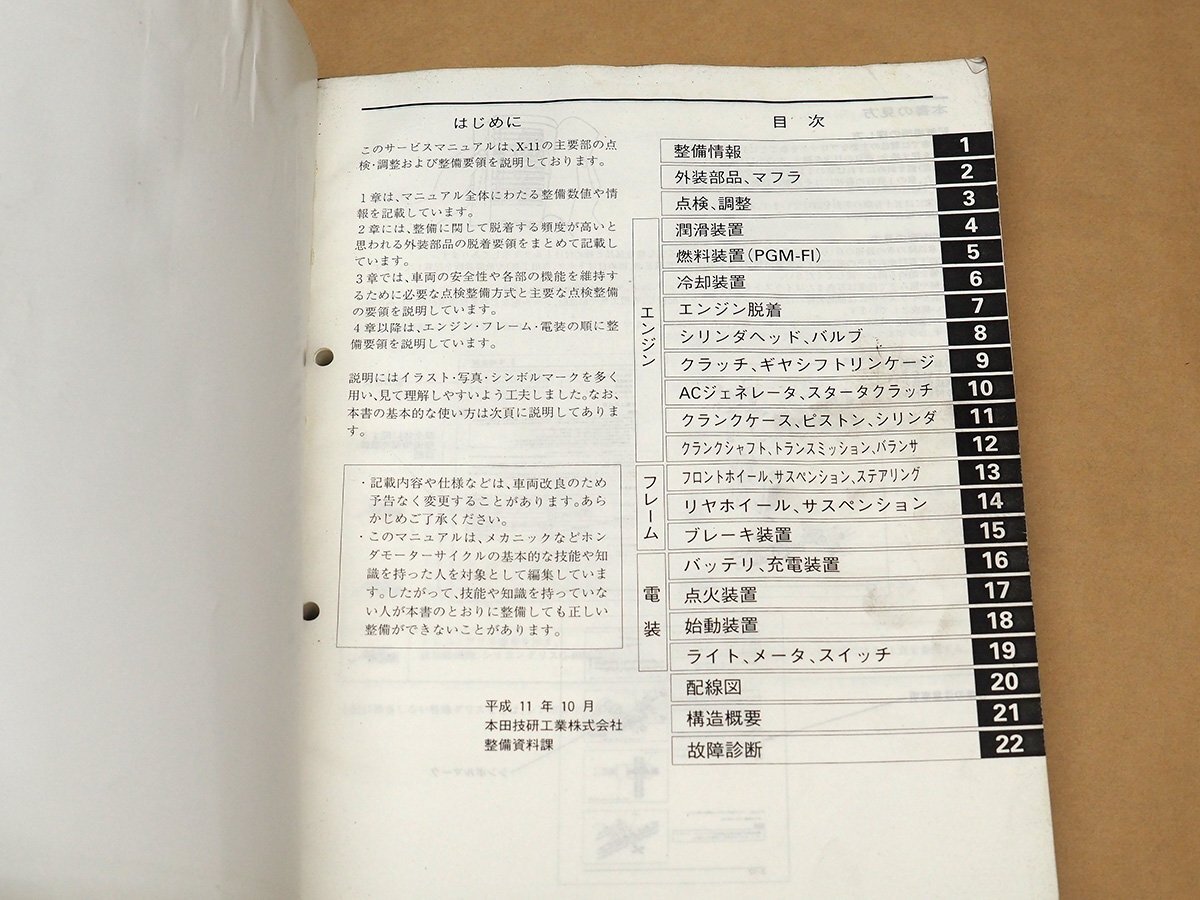 はじめに
このサービスマニュアルは、X-11の主要部の点
検・調整および整備要領を説明しております。
1章は、マニュアル全体にわたる整備数値や情
報を記載しています。
2章には、整備に関して脱着する頻度が高いと
思われる外装部品の脱着要領をまとめて記載し
ています。
3章では、車両の安全性や各部の機能を維持す
るために必要な点検整備方式と主要な点検整備
の要領を説明しています。
4章以降は、エンジン・フレーム・電装の順に整
備要領を説明しています。
説明にはイラスト・写真・シンボルマークを多く
用い、見て理解しやすいよう工夫しました。なお、
本書の基本的な使い方は次頁に説明してありま
す。
・記載内容や仕様などは、車両改良のため
予告なく変更することがあります。あら
かじめご了承ください。
・このマニュアルは、メカニックなどホン
ダモーターサイクルの基本的な技能や知
識を持った人を対象として編集していま
す。したがって、技能や知識を持っていな
い人が本書のとおりに整備しても正しい
整備ができないことがあります。
平成 11 年 10 月
本田技研工業株式会社
整備資料課
目 次
整備情報 1
外装部品、マフラ 2
点検、調整 3
エンジン
潤滑装置 4
燃料装置(PGM-FI) 5
冷却装置 6
エンジン脱着 7
シリンダヘッド、バルブ 8
クラッチ、ギヤシフトリンケージ 9
ACジェネレータ、スタータクラッチ 10
クランクケース、ピストン、シリンダ 11
クランクシャフト、トランスミッション、バランサ 12
フレーム
フロントホイール、サスペンション、ステアリング 13
リヤホイール、サスペンション 14
ブレーキ装置 15
電装
バッテリ、充電装置 16
点火装置 17
始動装置 18
ライト、メータ、スイッチ 19
配線図 20
構造概要 21
故障診断 22